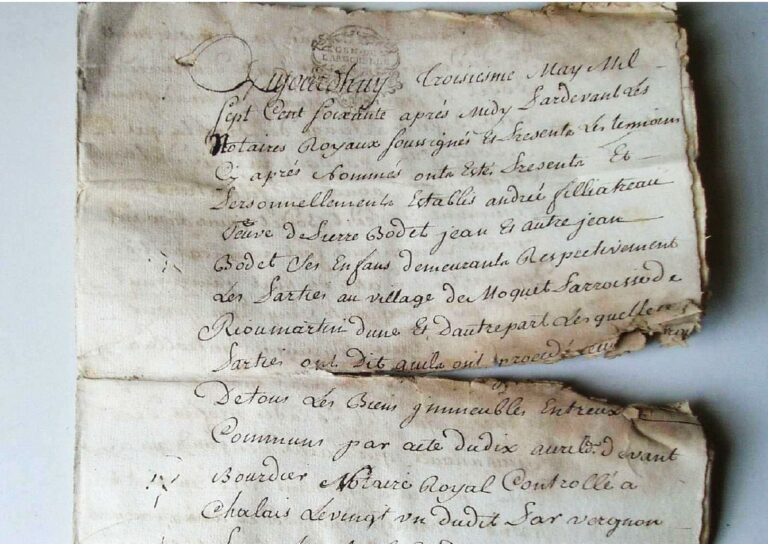 GEN. DE
LAROCHELLE
Aujourdhuy troisiesme May Mil
Sept Cent soixante aprés Midy Pardevant Les
Notaires Royaux soussignés Et Presents Les temoins
Cy aprés Nommés onts Esté Presents Et
Personnellements Establis andrée filliatreau
Veuve de Pierre Bodet jean Et autre jean
Bodet Ses Enfans demeurants Respectivement
Les Parties au village de Moquet Parroisse de
Rioumartin dune Et Dautre part Lesquelles
Parties ont Dit quils ont procedé
De tous Les Biens jmmeubles Entreux
Communs par acte du dix auril devant
Bourdier Notaire Royal Controllé a
Chalais Levingt un dudit Par vergnon